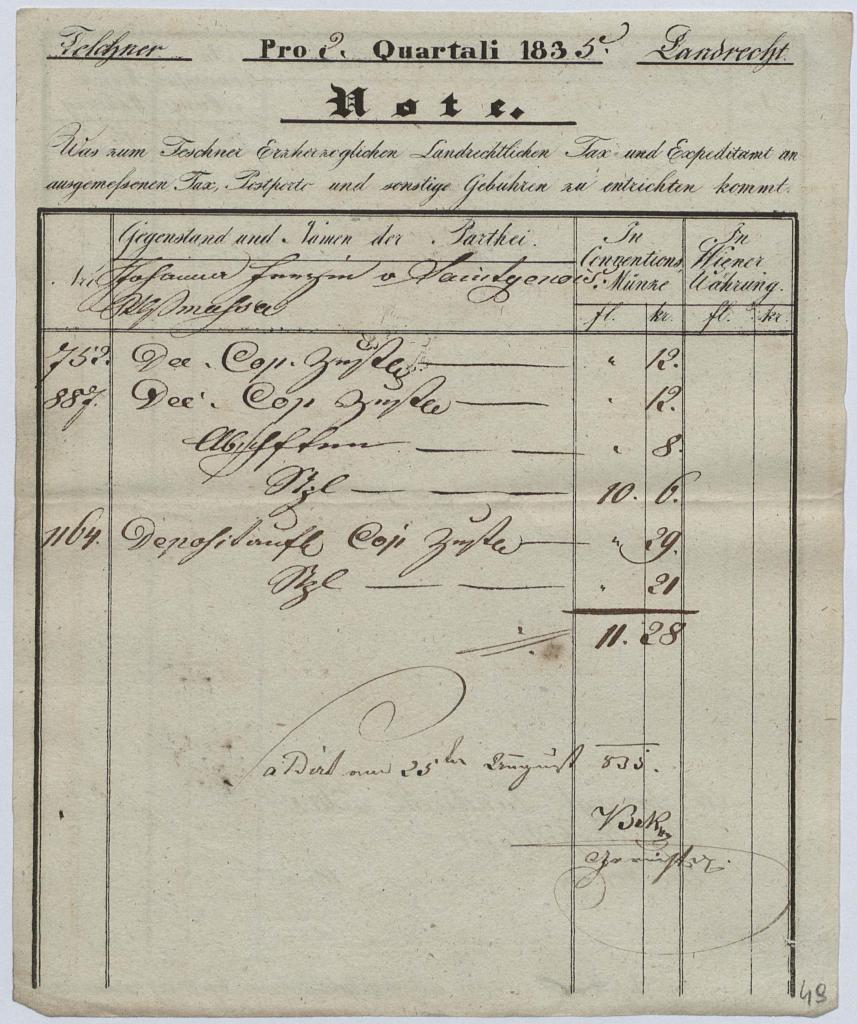 Teschner Pro 2. Quartali 1835. Landrecht.
Note.
Was zum Teschner Erzherzoglichen Landrechtlichen Tax und Expeditamt an
ausgemeßenen Tax, Postporto und sonstige Gebühren zu entrichten kommt.
Gegenstand und Namen der Parthei. In Conventions Münze In Wiener Währung.
Nr. Johanna v Saintgenois
masse
fl. kr. fl. kr.
752. Dec. Cop. Zustel " 12.
887. Dec. Cop Zustel " 12.
Abschften " 8.
Stpl 10. 6.
1164. Depositaufl Cop Zustel " 29.
Stpl " 21
11. 28
25ten August 835.
49